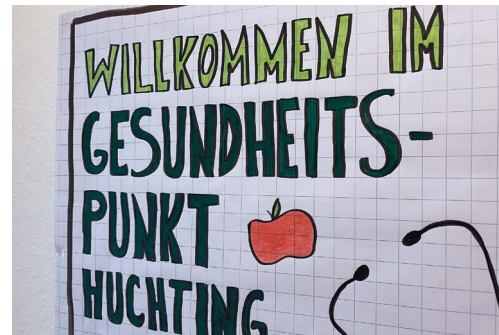 WILLKOMMEN IM
GESUNDHEITS-
PUNKT
HUCHTING